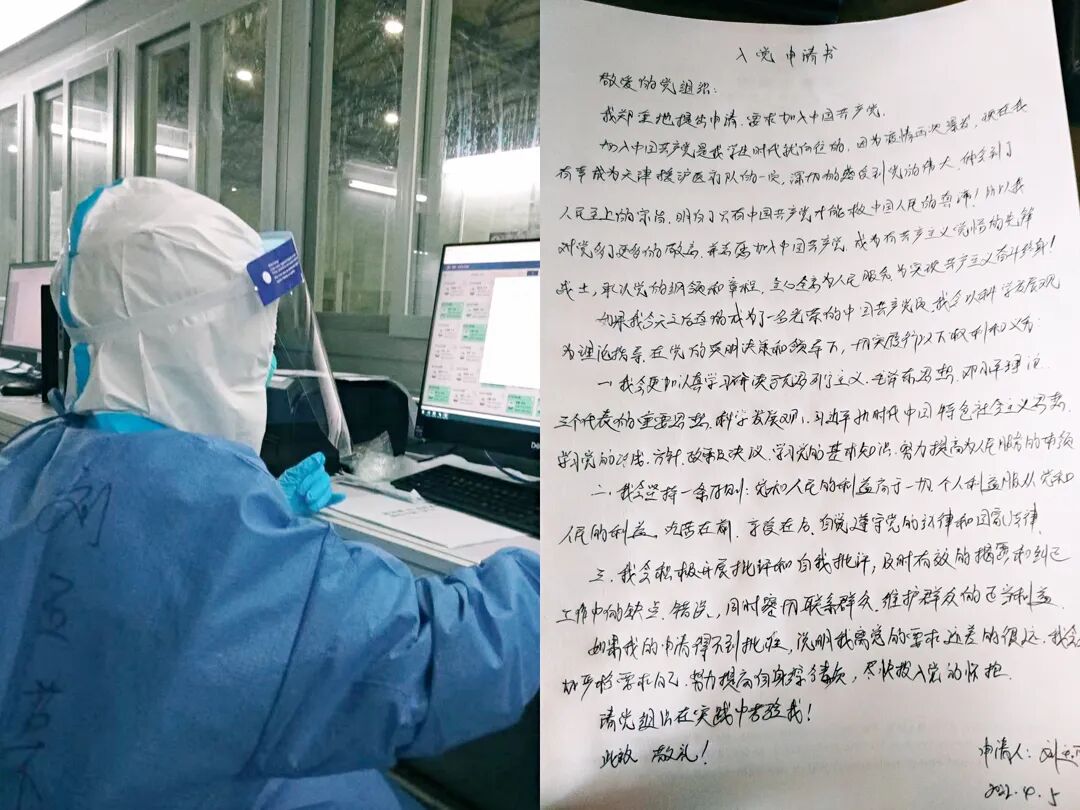 刘
入党申请书
敬爱的党组织：
我郑重地提出申请，要求加入中国共产党。
加入中国共产党是我学生时代就向往的，因为疫情再次暴发，现在我
有幸成为天津援沪医疗队的一员，深切的感受到党的伟大，体会到了
人民至上的宗旨，明白了只有中国共产党才能救中国人民的真谛！所以我
对党多了更多的敬意，并志愿加入中国共产党，成为有共产主义觉悟的先锋
战士，承认党的纲领和章程，全心全意为人民服务，为实现共产主义奋斗终身！
如果我今天之后这成为了一名光荣的中国共产党员，我会以科学发展观
为理论指导，在党的英明决策和领导下，切实履行以下权利和义务：
一、我会更加认真学习马克思列宁主义、毛泽东思想、邓小平理论、
三个代表的重要思想、科学发展观、习近平新时代中国特色社会主义思想，
学习党的路线、方针、政策及决议，学习党的基本知识，努力提高为人民服务的本领
二、我会坚持一条原则：党和人民的利益高于一切，个人利益服从党和
人民的利益，吃苦在前，享受在后，自觉遵守党的纪律和国家法律
三、我会积极开展批评和自我批评，及时有效的揭露和纠正
工作中的缺点、错误，同时密切联系群众，维护群众的正当利益
如果我的申请得不到批准，说明我离党的要求还差的很远，我会
严格要求自己，努力提高自身综合素质，尽快投入党的怀抱。
请党组织在实践中考验我！
此致 敬礼！
申请人：刘
2022.4.5